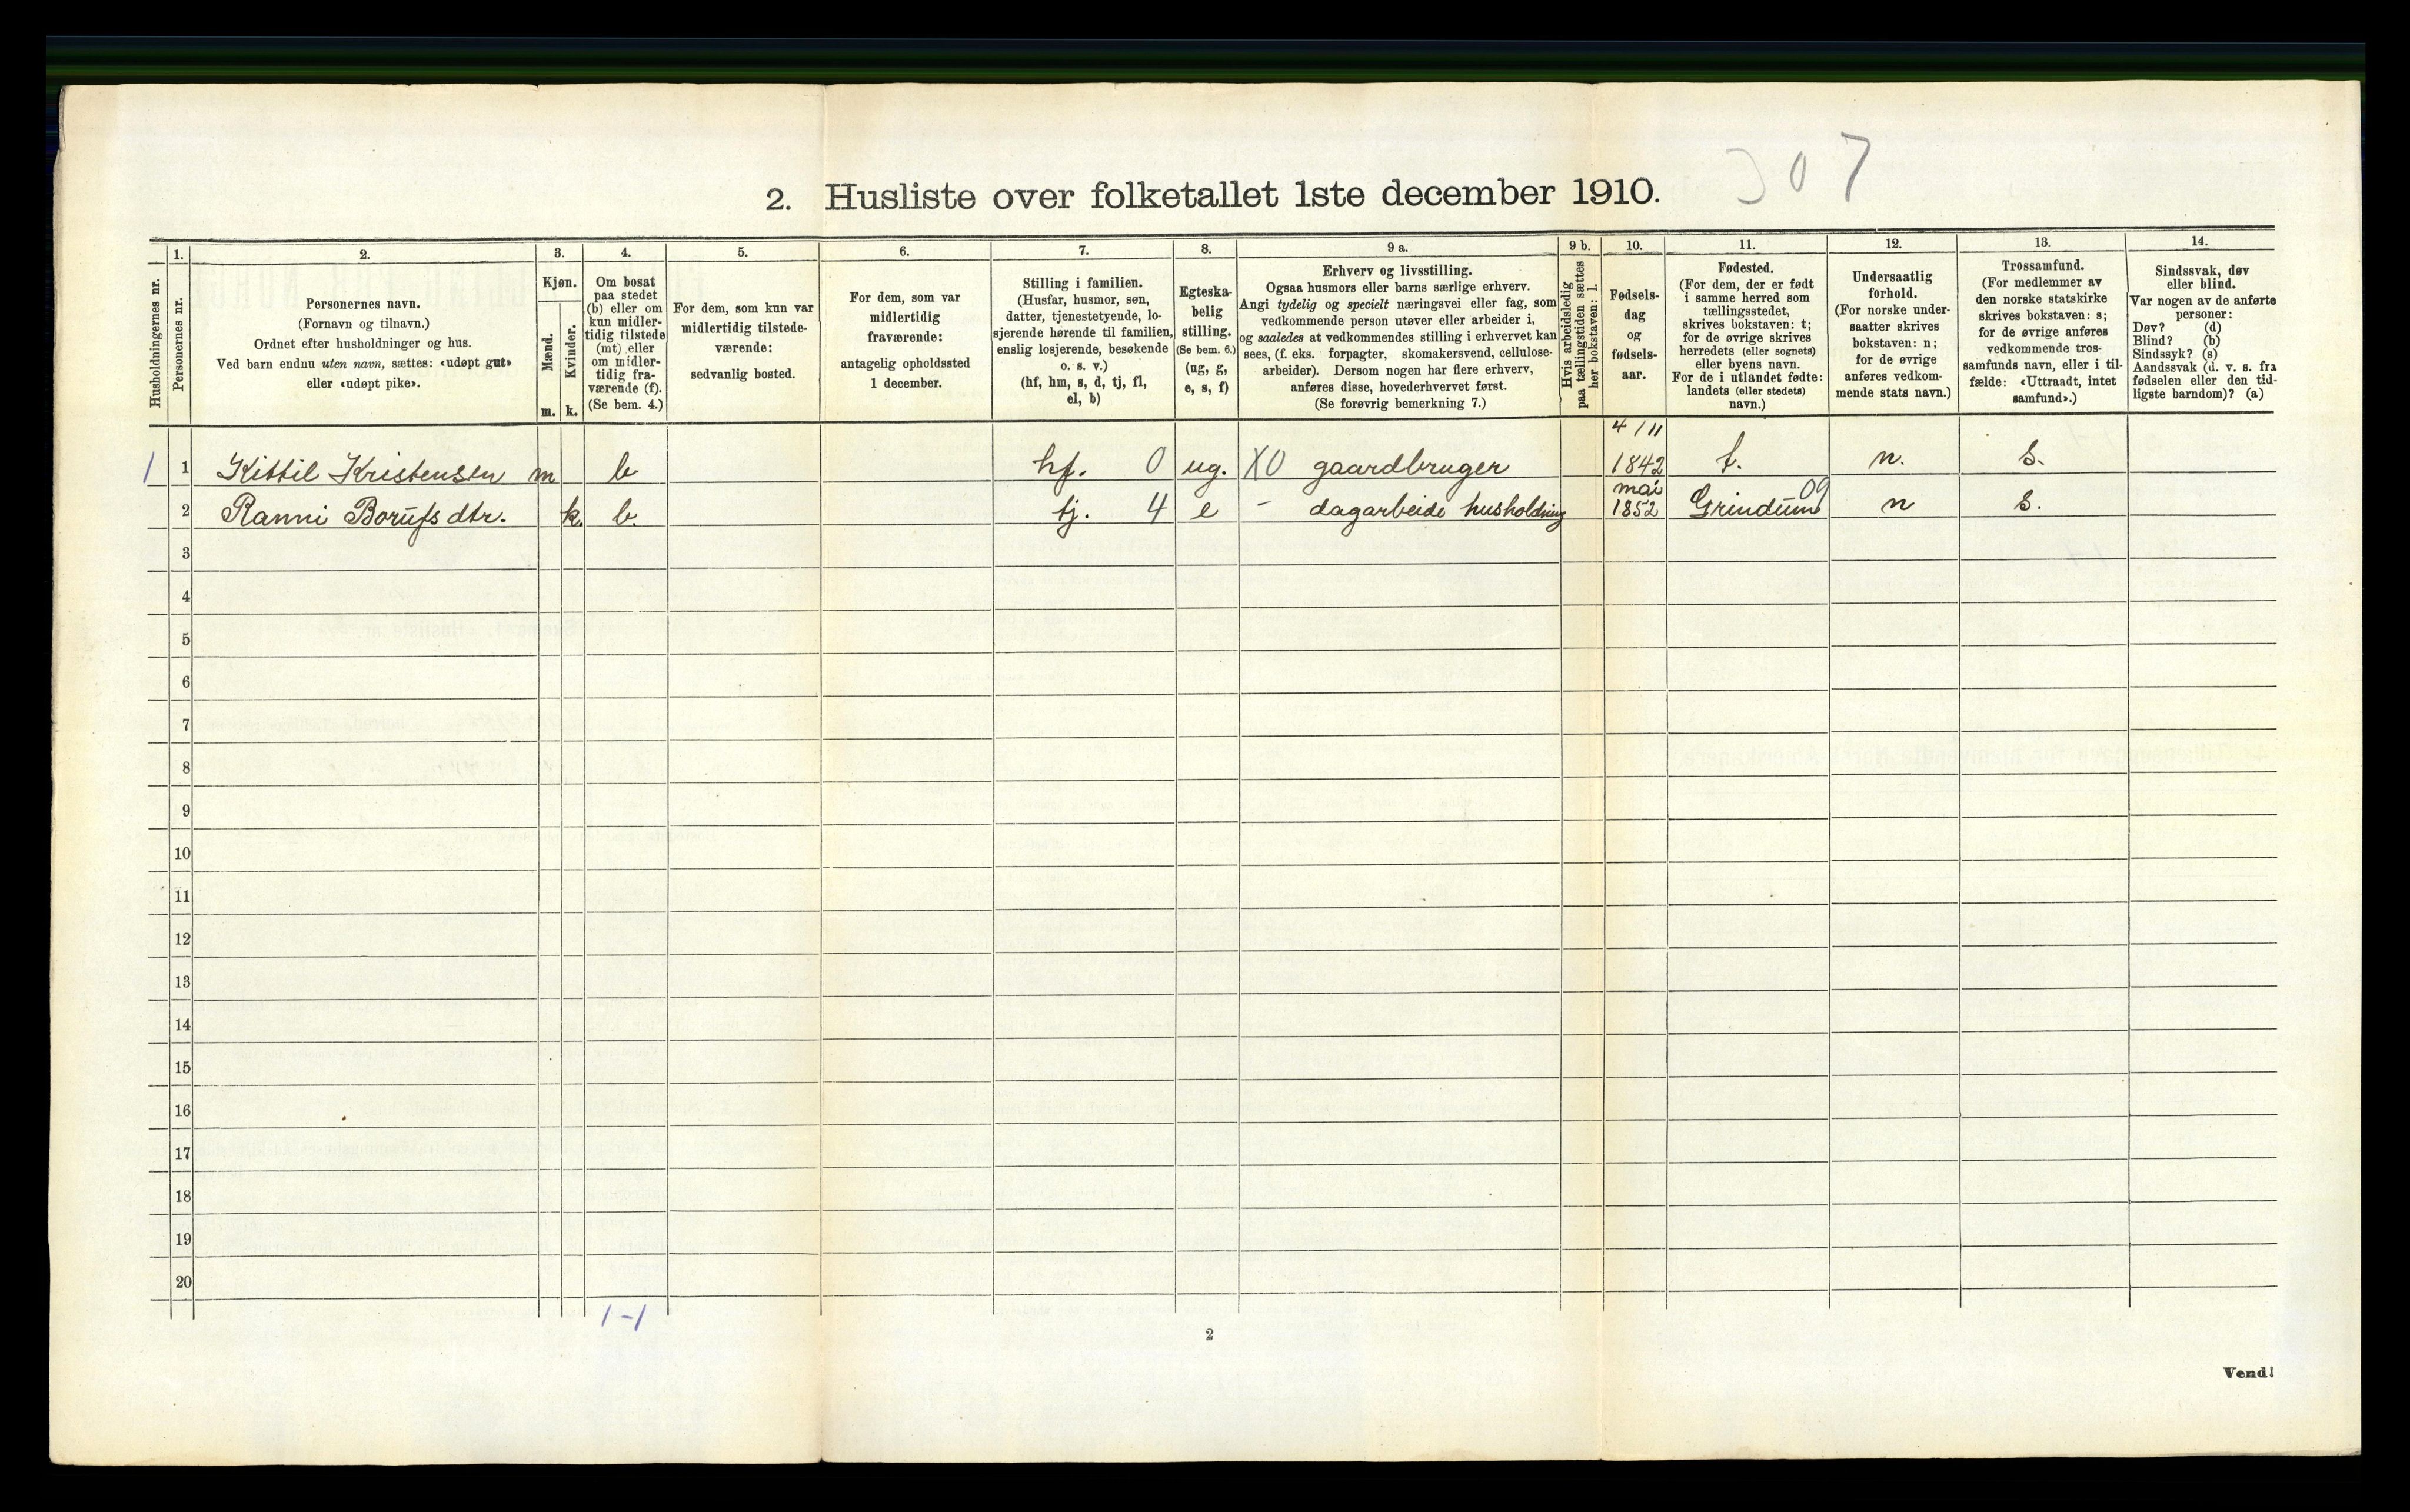 307
2. Husliste over folketallet 1ste december 1910.
Husholdningernes nr.
1.
Personernes nr.
2.
Personernes navn.
(Fornavn og tilnavn.)
Ordnet efter husholdninger og hus.
Ved barn endnu uten navn, sættes: «udøpt gut»
eller «udøpt pike».
3.
Kjøn.
Mænd.
m.
Kvinder.
k.
4.
Om bosat
paa stedet
(b) eller om
kun midler-
tidig tilstede
(mt) eller
om midler-
tidig fra-
værende (f).
(Se bem. 4.)
5.
For dem, som kun var
midlertidig tilstede-
værende:
sedvanlig bosted.
6.
For dem, som var
midlertidig
fraværende:
antagelig opholdssted
1 december.
7.
Stilling i familien.
(Husfar, husmor, søn,
datter, tjenestetyende, lo-
sjerende hørende til familien,
enslig losjerende, besøkende
o. s. v.)
(hf, hm, s, d, tj, fl,
el, b)
8.
Egteska-
belig
stilling.
(Se bem. 6.)
(ug, g,
e, s, f)
9 a.
Erhverv og livsstilling.
Ogsaa husmors eller barns særlige erhverv.
Angi tydelig og specielt næringsvei eller fag, som
vedkommende person utøver eller arbeider i,
og saaledes at vedkommendes stilling i erhvervet kan
sees, (f. eks. forpagter, skomakersvend, cellulose-
arbeider). Dersom nogen har flere erhverv,
anføres disse, hovederhvervet først.
(Se forøvrig bemerkning 7.)
9 b.
Hvis arbeidsledig
paa tællingstiden sættes
her bokstaven: l.
10.
Fødsels-
dag
og
fødsels-
aar.
11.
Fødested.
(For dem, der er født
i samme herred som
tællingsstedet,
skrives bokstaven: t;
for de øvrige skrives
herredets (eller sognets)
eller byens navn.
For de i utlandet fødte:
landets (eller stedets)
navn.)
12.
Undersaatlig
forhold.
(For norske under-
saatter skrives
bokstaven: n;
for de øvrige
anføres vedkom-
mende stats navn.)
13.
Trossamfund.
(For medlemmer av
den norske statskirke
skrives bokstaven: s;
for de øvrige anføres
vedkommende tros-
samfunds navn, eller i til-
fælde: «Uttraadt, intet
samfund».)
14.
Sindssvak, døv
eller blind.
Var nogen av de anførte
personer:
Døv? (d)
Blind? (b)
Sindssyk? (s)
Aandssvak (d. v. s. fra
fødselen eller den tid-
ligste barndom)? (a)
1 1 Kittil Kristensen m b hf. 0 ug. X0 gaardbruger 4/11 1842 t. n. s.
2 Ranni Borufsdtr. k. b. tj. 4 e - dagarbeide husholdning mai 1852 Grindum 09 n s.
3
4
5
6
7
8
9
10
11
12
13
14
15
16
17
18
19
20
1-1
2
Vend!